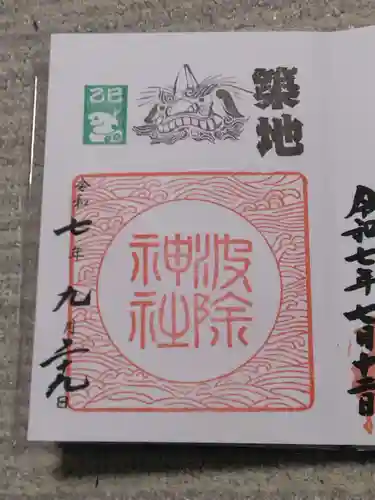 築地
乙巳
波除
神社
令和七年九月二十九日
令和七年七月十二日